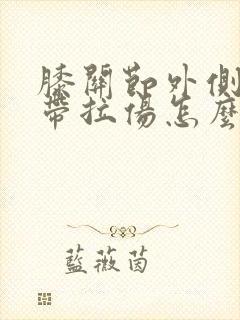 膝關節外側
帶拉傷怎麼
藍薇茵